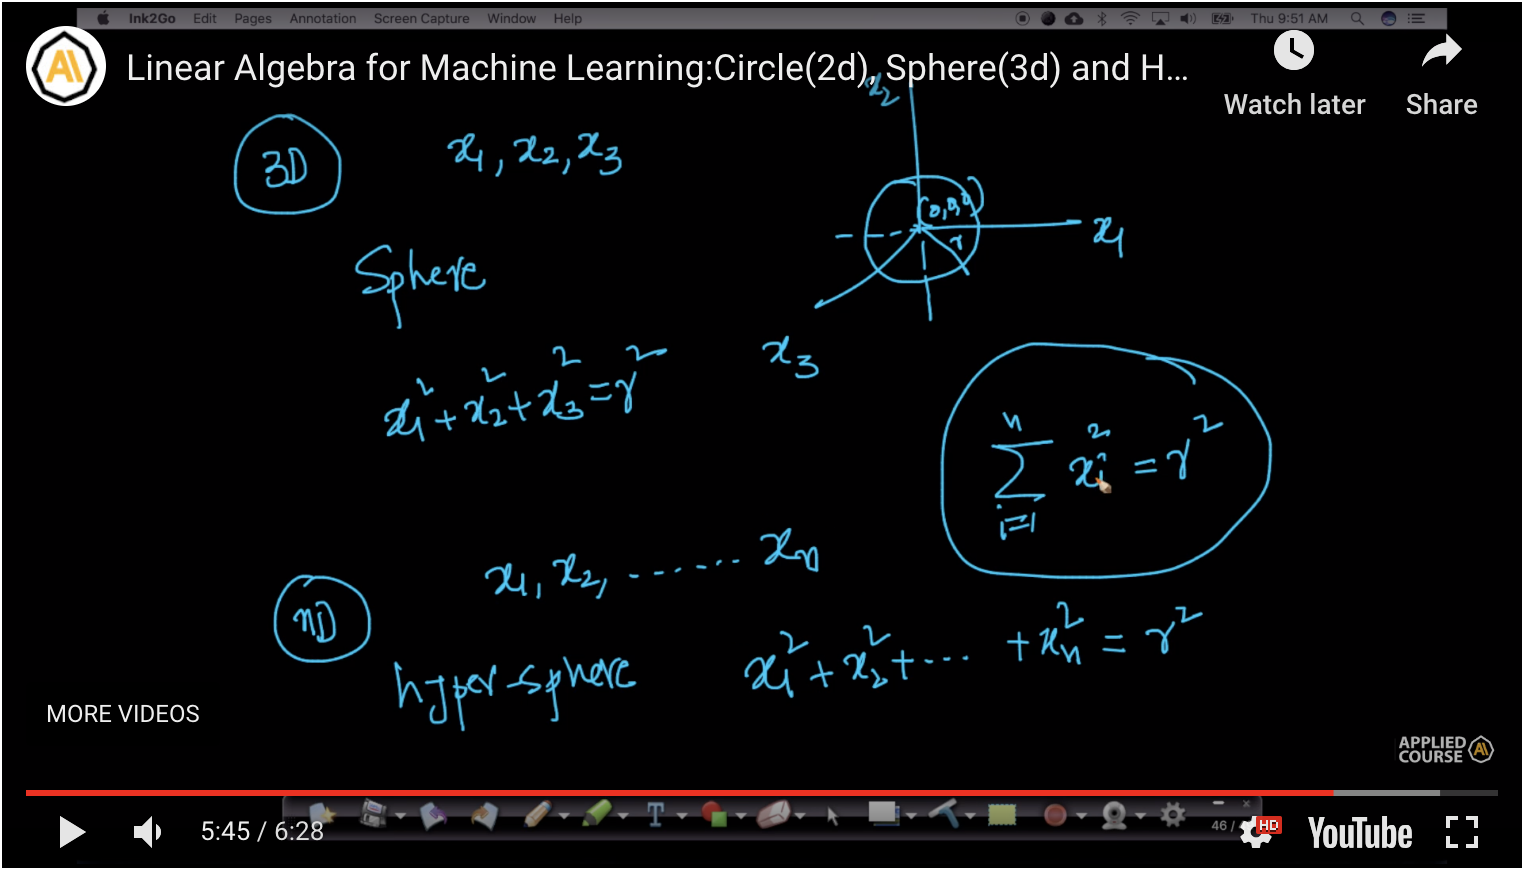 Ink2Go Edit Pages Annotation Screen Capture Window Help Thu 9:51 AM
Linear Algebra for Machine Learning:Circle(2d), Sphere(3d) and H...
Watch later
Share
x₂
3D
x₁, x₂, x₃
(0,0,0)
r
x₁
Sphere
x₃
x₁² + x₂² + x₃² = r²
n
∑ xᵢ² = r²
i=1
x₁, x₂, ....... xₙ
nD
hyper-sphere
x₁² + x₂² + ... + xₙ² = r²
MORE VIDEOS
APPLIED
COURSE
T
46 /
5:45 / 6:28
HD
YouTube